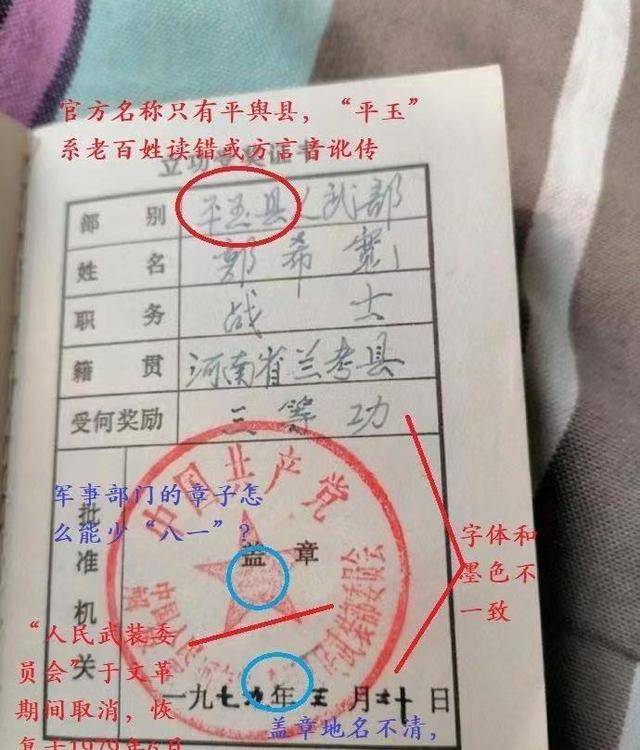 官方名称只有平舆县，“平玉”
系老百姓读错或方言音讹传
部 别 平玉县人武部
姓 名 郭希宽
职 务 战士
籍 贯 河南省兰考县
受何奖励 三等功
中国共产党
军事部门的章子怎
么能少“八一”？
批准机关
盖章
字体和
墨色不
一致
“人民武装委
员会”于文革
期间取消，恢
一九七九年三月二十日
盖章地名不清，